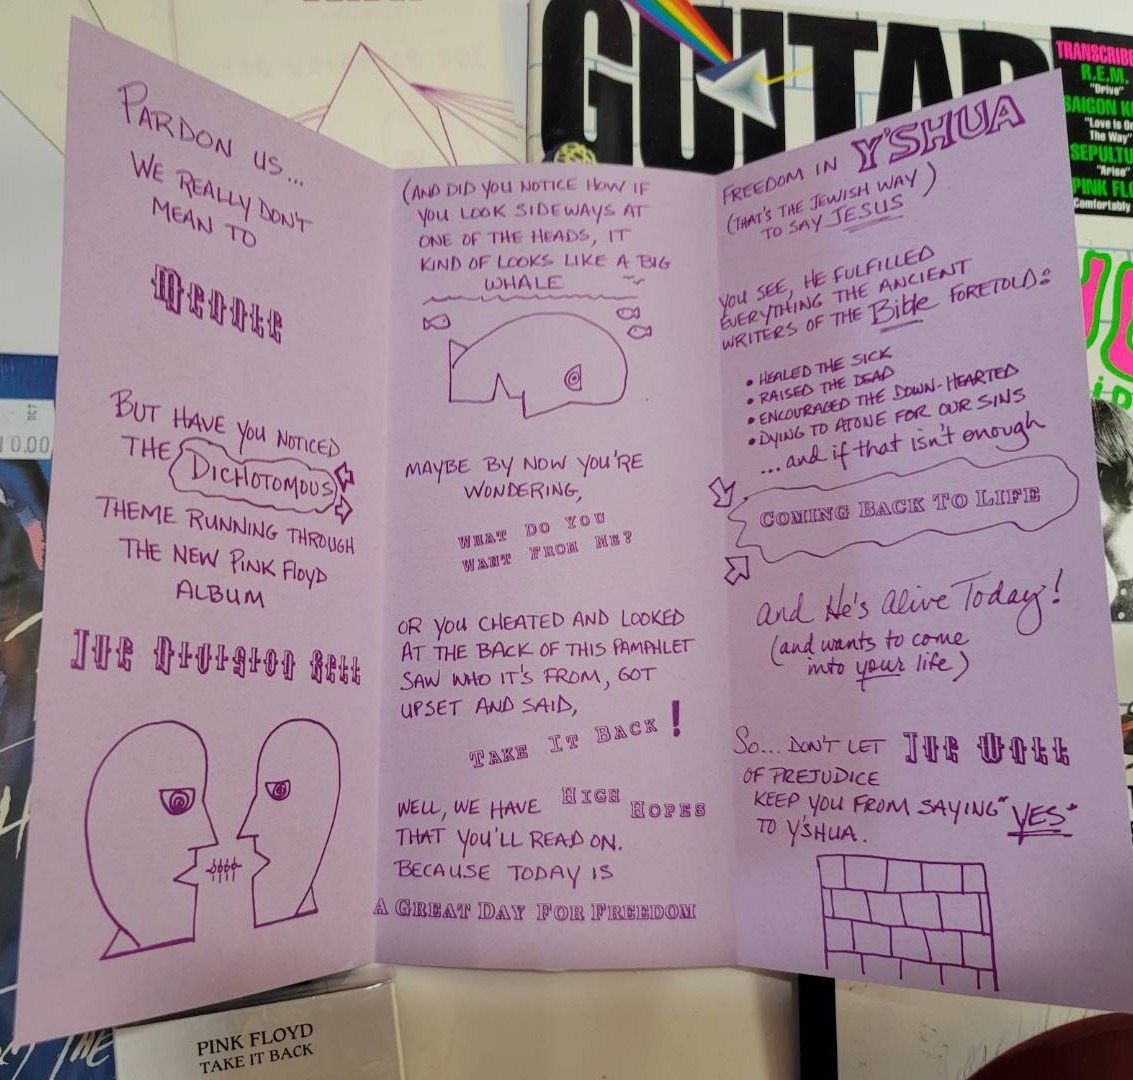 PARDON US...
WE REALLY DON'T
MEAN TO
Meddle
BUT HAVE YOU NOTICED
THE DICHOTOMOUS
THEME RUNNING THROUGH
THE NEW PINK FLOYD
ALBUM
The Division Bell
(AND DID YOU NOTICE HOW IF
YOU LOOK SIDEWAYS AT
ONE OF THE HEADS, IT
KIND OF LOOKS LIKE A BIG
WHALE
MAYBE BY NOW YOU'RE
WONDERING,
WHAT DO YOU
WANT FROM ME?
OR YOU CHEATED AND LOOKED
AT THE BACK OF THIS PAMPHLET
SAW WHO IT'S FROM, GOT
UPSET AND SAID,
TAKE IT BACK!
WELL, WE HAVE HIGH HOPES
THAT YOU'LL READ ON.
BECAUSE TODAY IS
A GREAT DAY FOR FREEDOM
FREEDOM IN Y'SHUA
(THAT'S THE JEWISH WAY)
TO SAY JESUS
YOU SEE, HE FULFILLED
EVERYTHING THE ANCIENT
WRITERS OF THE Bible FORETOLD:
• HEALED THE SICK
• RAISED THE DEAD
• ENCOURAGED THE DOWN-HEARTED
• DYING TO ATONE FOR OUR SINS
...and if that isn't enough
COMING BACK TO LIFE
and He's alive Today!
(and wants to come
into your life)
So... DON'T LET The Wall
OF PREJUDICE
KEEP YOU FROM SAYING "YES"
TO Y'SHUA.
GUITAR
TRANSCRIBE
R.E.M.
"Drive"
SAIGON KI
"Love Is On
The Way"
SEPULTU
"Arise"
PINK FLO
Comfortably
OCT
10.00
PINK FLOYD
TAKE IT BACK